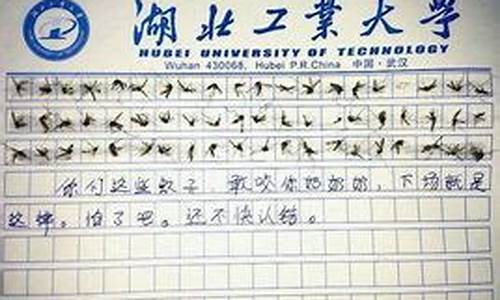 湖北工業大學
HUBEI UNIVERSITY OF TECHNOLOGY
Wuhan 430068, Hubei P.R.China 中国·武汉
你们这些蚊子,敢咬你奶奶奶,下场就是
这样。怕了吧。还不快认错。